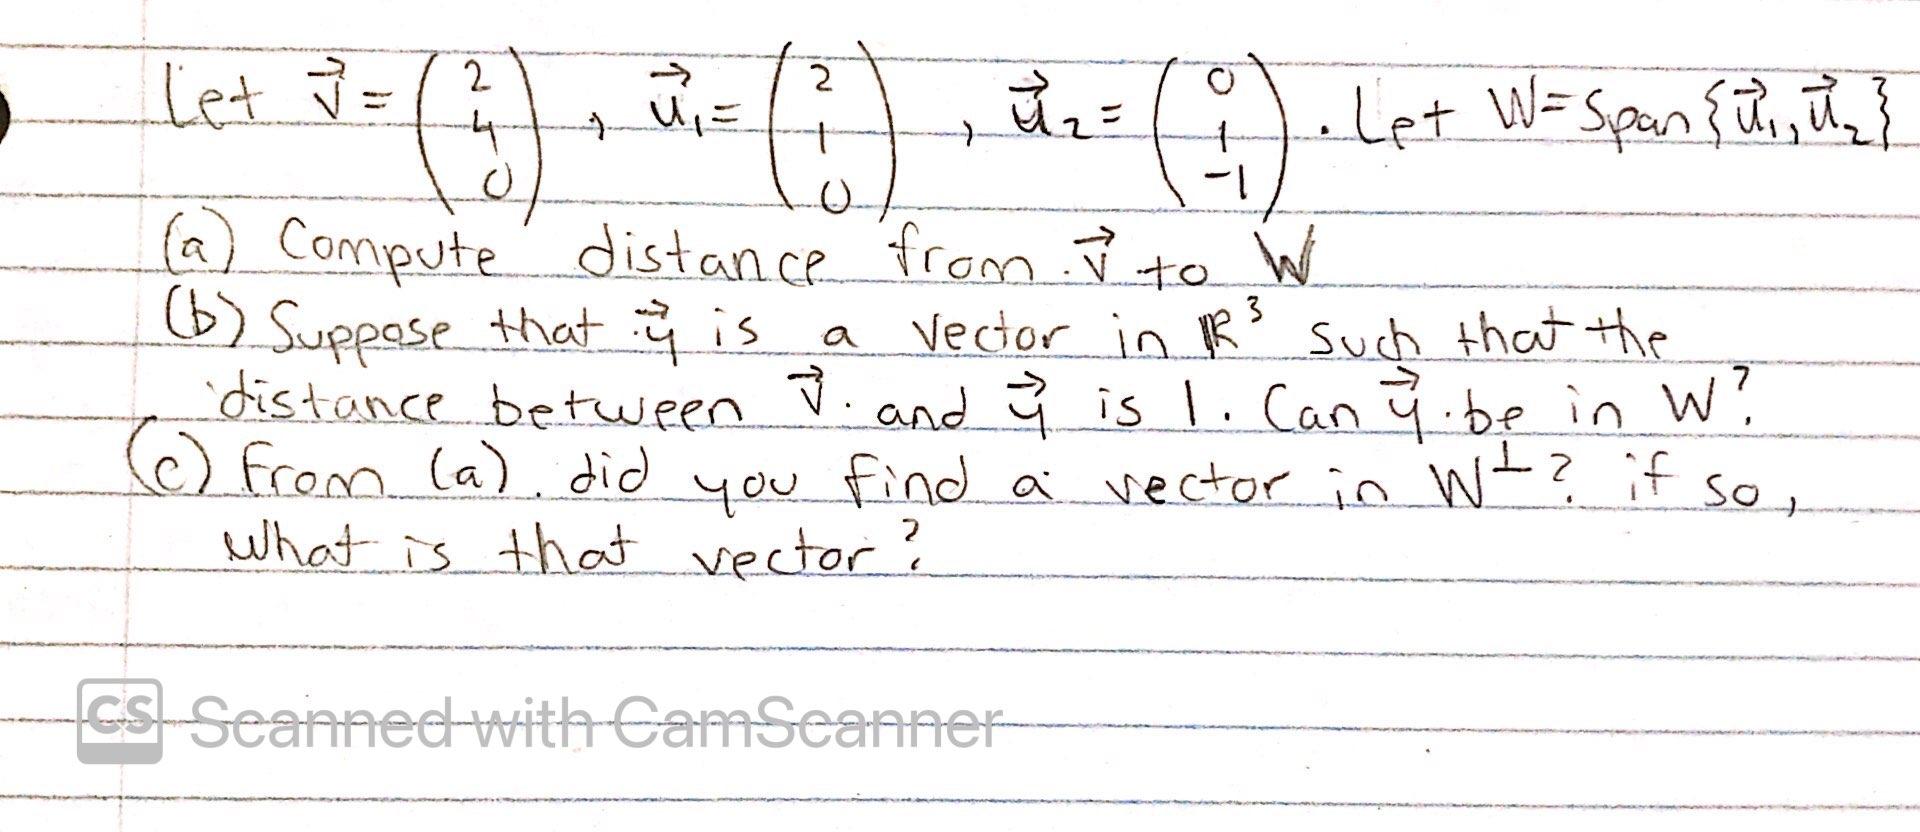 Let v⃗ = (2 4 0), u⃗₁ = (2 1 0), u⃗₂ = (0 1 -1). Let W = Span{u⃗₁, u⃗₂}
(a) Compute distance from v⃗ to W
(b) Suppose that y⃗ is a vector in ℝ³ such that the
distance between v⃗ and y⃗ is 1. Can y⃗ be in W?
(c) From (a) did you find a vector in W⊥? if so,
what is that vector?
CS Scanned with CamScanner